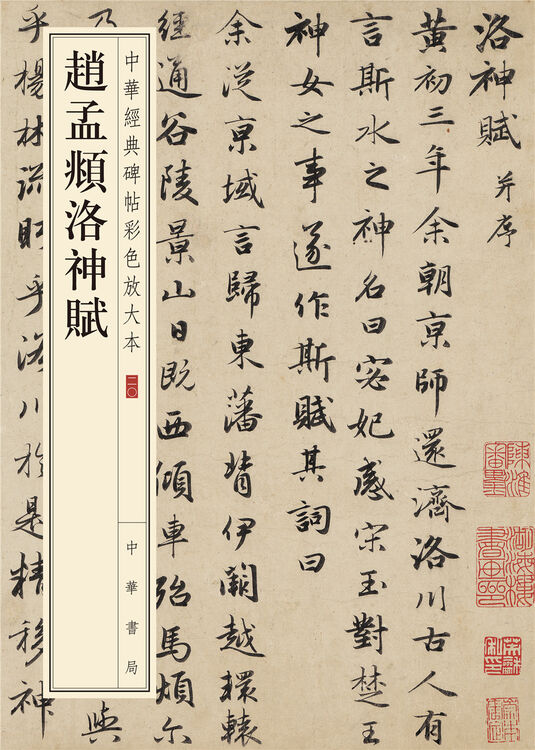 洛神賦 并序
黄初三年余朝京師還濟洛川古人有
言斯水之神名曰宓妃感宋玉對楚王
神女之事遂作斯賦其詞曰
余從京域言歸東藩背伊闕越轘轅
經通谷陵景山日既西傾車殆馬煩尔
乃
與
乎楊林流眄乎洛川於是精移神
中華經典碑帖彩色放大本
二〇
趙孟頫洛神賦
中華書局